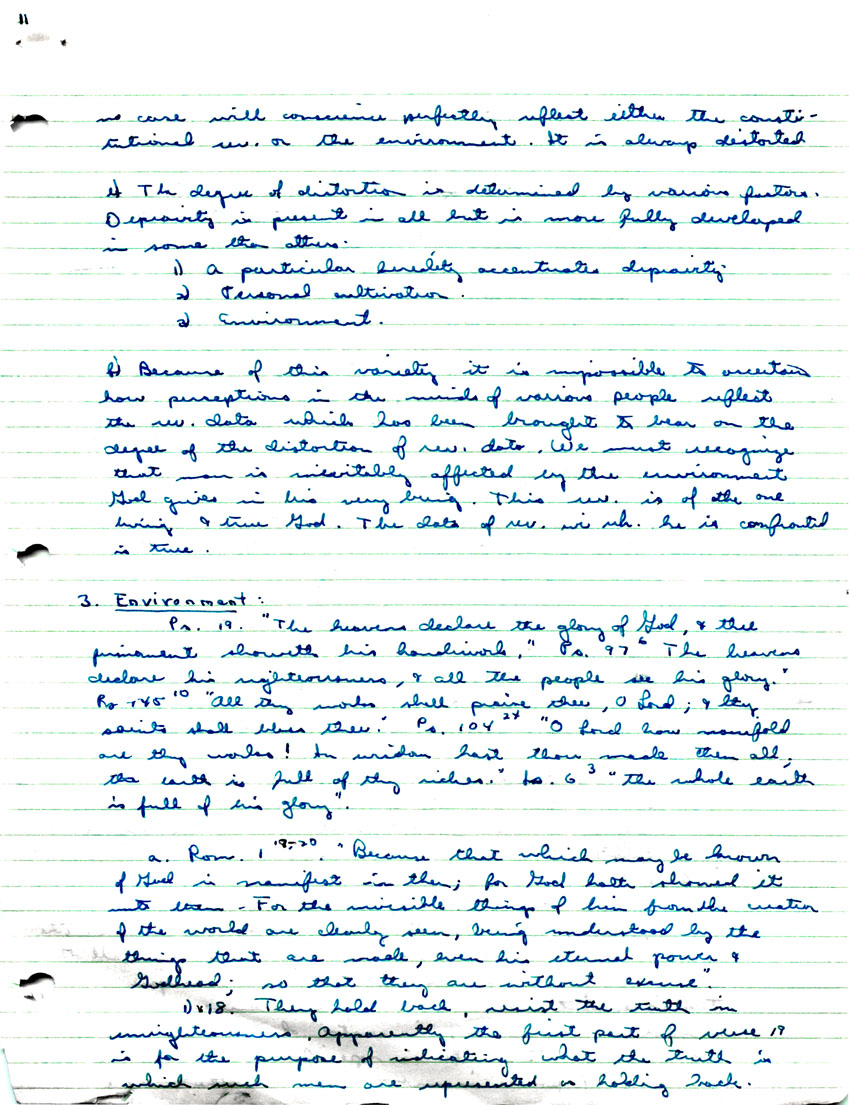 11
no case will conscience perfectly reflect either the consti-
tutional rev. or the environment. It is always distorted
a) The degree of distortion is determined by various factors.
Depravity is present in all but is more fully developed
in some than others.
1) A particular heredity accentuates depravity
2) Personal cultivation.
3) Environment.
b) Because of this variety it is impossible to ascertain
how perceptions in the minds of various people reflect
the rev. data which has been brought to bear on the
degree of the distortion of rev. data. We must recognize
that man is inevitably affected by the environment
God gives in his very being. This rev. is of the one
living & true God. The data of rev. wi wh. he is confronted
is true.
3. Environment:
Ps. 19. "The heavens declare the glory of God, & the
firmament showeth his handiwork." Ps. 97 6 The heavens
declare his righteousness, & all the people see his glory."
Ps 145 10 "All thy works shall praise thee, O Lord; & thy
saints shall bless thee." Ps. 104 24 "O Lord how manifold
are thy works! In wisdom hast thou made them all,
the earth is full of thy riches." Is. 6 3 "the whole earth
is full of his glory".
a. Rom. 1 18-20. "Because that which may be known
of God is manifest in them; for God hath showed it
unto them - For the invisible things of him from the creation
of the world are clearly seen, being understood by the
things that are made, even his eternal power &
Godhead; so that they are without excuse".
1) v 18. They hold back, resist the truth in
unrighteousness. Apparently the first part of verse 19
is for the purpose of indicating what the truth is
which such men are represented as holding back.